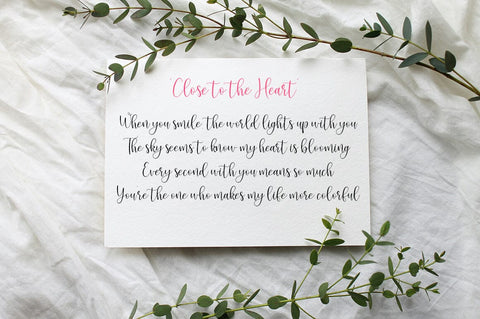 "Close to the Heart"
When you smile the world lights up with you
The sky seems to know my heart is blooming
Every second with you means so much
You're the one who makes my life more colorful